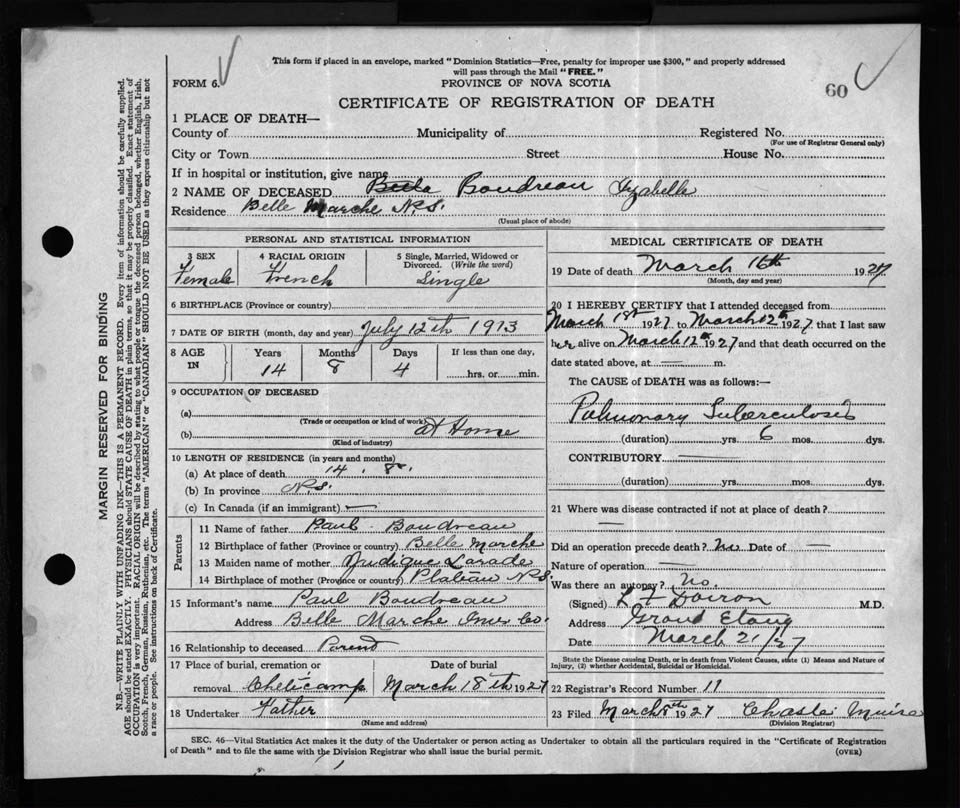 This form if placed in an envelope, marked "Dominion Statistics—Free, penalty for improper use $300," and properly addressed
will pass through the Mail "FREE."
FORM 6. PROVINCE OF NOVA SCOTIA 60
CERTIFICATE OF REGISTRATION OF DEATH
1 PLACE OF DEATH—
County of Municipality of Registered No.
(For use of Registrar General only)
City or Town Street House No.
If in hospital or institution, give name
2 NAME OF DECEASED Boudreau Izabelle
Residence Belle Marche N.S.
(Usual place of abode)
PERSONAL AND STATISTICAL INFORMATION
3 SEX 4 RACIAL ORIGIN 5 Single, Married, Widowed or
Divorced. (Write the word)
Female French Single
6 BIRTHPLACE (Province or country)
7 DATE OF BIRTH (month, day and year) July 12th 1913
8 AGE Years Months Days If less than one day,
IN 14 8 4 hrs. or min.
9 OCCUPATION OF DECEASED
(a)
(Trade or occupation or kind of work)
(b) at Home
(Kind of industry)
10 LENGTH OF RESIDENCE (in years and months)
(a) At place of death 14. 8
(b) In province N.S.
(c) In Canada (if an immigrant) —
Parents
11 Name of father Paul Boudreau
12 Birthplace of father (Province or country) Belle Marche
13 Maiden name of mother
14 Birthplace of mother (Province or country) Plateau N.S.
15 Informant's name Paul Boudreau
Address Belle Marche Inver Co.
16 Relationship to deceased Parent
17 Place of burial, cremation or Date of burial
removal Cheticamp March 18th 1927
18 Undertaker Father
(Name and address)
MEDICAL CERTIFICATE OF DEATH
19 Date of death March 16th 1927
(Month, day and year)
20 I HEREBY CERTIFY that I attended deceased from
March 1st 1927 to March 12th 1927, that I last saw
her alive on March 12th 1927 and that death occurred on the
date stated above, at — m.
The CAUSE of DEATH was as follows:—
Pulmonary Tuberculosis
(duration) yrs. 6 mos. dys.
CONTRIBUTORY —
(duration) yrs. mos. dys.
21 Where was disease contracted if not at place of death?
—
Did an operation precede death? No Date of —
Nature of operation —
Was there an autopsy? No.
(Signed) L F Doiron M.D.
Address Grand Etang
Date March 21/27
State the Disease causing Death, or in death from Violent Causes, state (1) Means and Nature of
Injury, (2) whether Accidental, Suicidal or Homicidal.
22 Registrar's Record Number 11
23 Filed March 1927
(Division Registrar)
SEC. 46—Vital Statistics Act makes it the duty of the Undertaker or person acting as Undertaker to obtain all the particulars required in the "Certificate of Registration
of Death" and to file the same with the Division Registrar who shall issue the burial permit. (OVER)
MARGIN RESERVED FOR BINDING
N.B.—WRITE PLAINLY WITH UNFADING INK—THIS IS A PERMANENT RECORD. Every item of information should be carefully supplied.
AGE should be stated EXACTLY. PHYSICIANS should STATE CAUSE OF DEATH in plain terms, so that it may be properly classified. Exact statement of
OCCUPATION is very important. RACIAL ORIGIN will be described by stating to what people or tongue the deceased person belonged, whether English, Irish,
Scotch, French, German, Russian, Ruthenian, etc. The terms "AMERICAN" or "CANADIAN" SHOULD NOT BE USED as they express citizenship but not
a race or people. See instructions on back of Certificate.